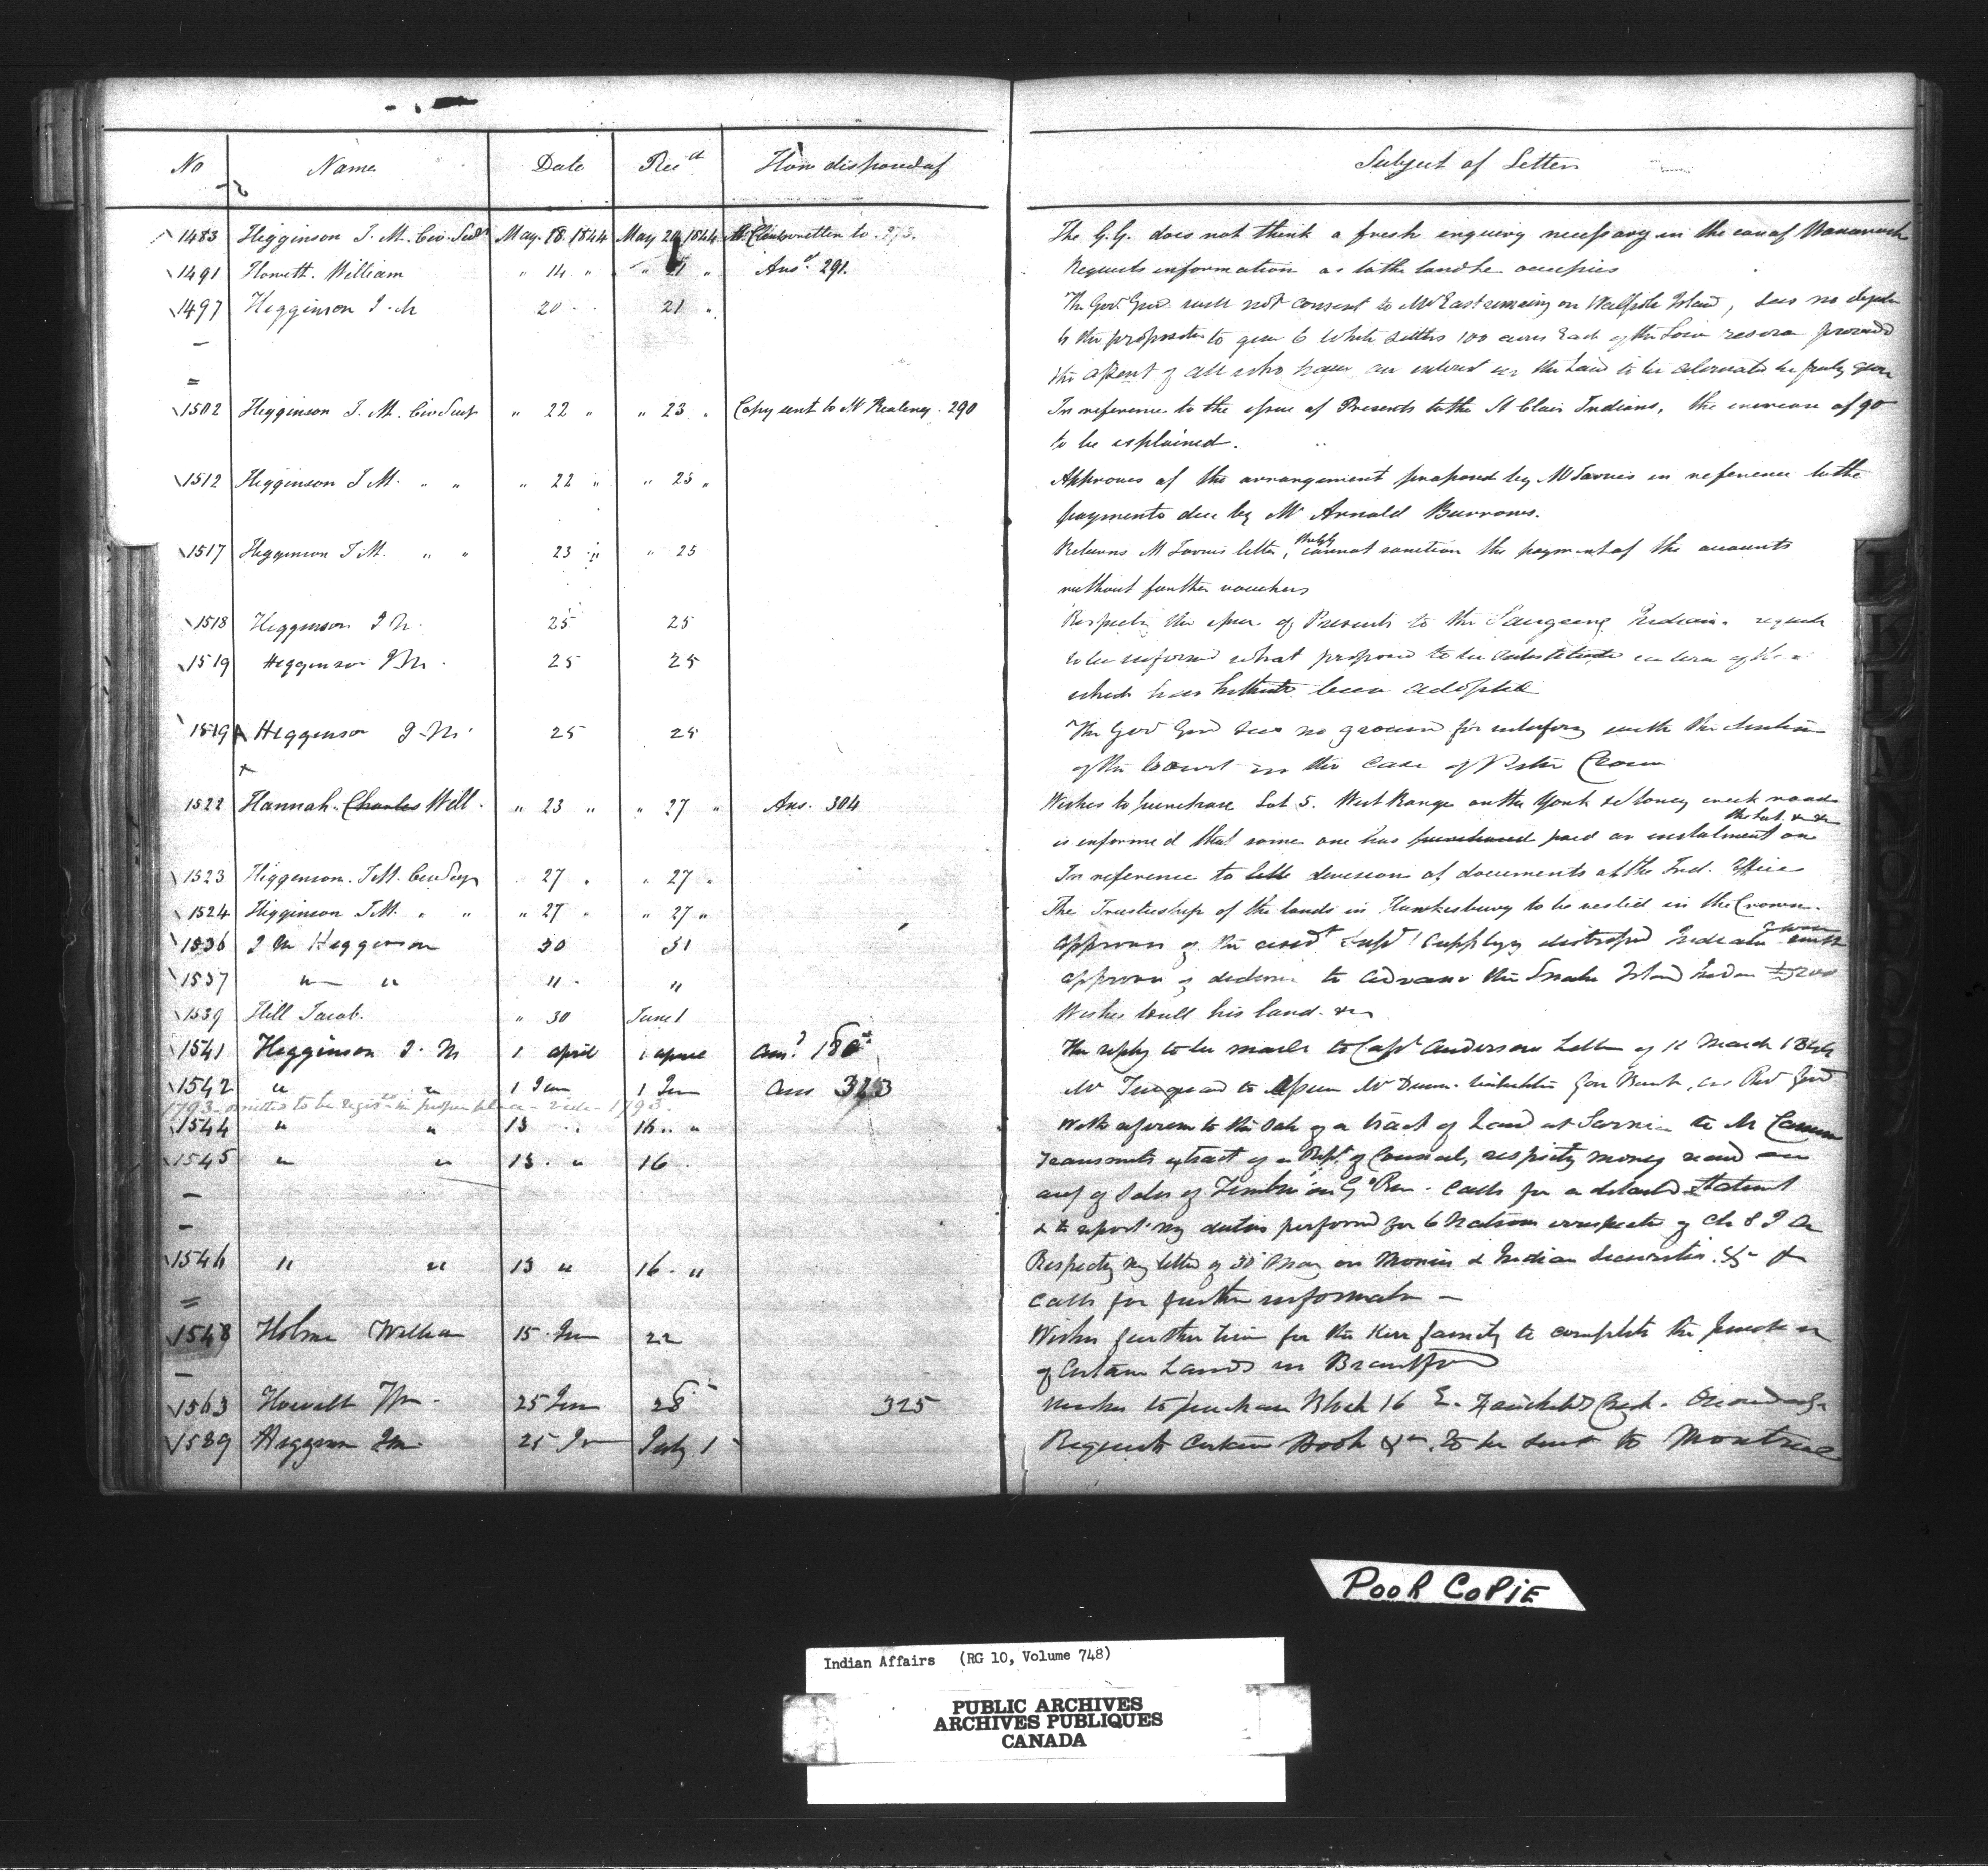 No Name Date Rec'd How disposed of Subject of Letter
1483 Higginson J. M. Civ. Sec'y May. 18. 1844 May 20 1844 The G.G. does not think a fresh enquiry necessary in the case of Wawanosh
1491 Howett. William " 14 " " 21 " Ans'd 291. Requests information as to the land he occupies
1497 Higginson J. M 20 21 " The Gov Gen'l will not consent to Mr East remaining on Walpole Island, sees no
to the proposition to give 6 White settlers 100 acres Each of the Lower reserve provided
the assent of all who have an interest in the Land to be alienated be freely given
1502 Higginson J. M. Civ Secy " 22 " " 23 " Copy sent to Mr Keating. 290 In reference to the issue of Presents to the St Clair Indians, the increase of 90
to be explained.
1512 Higginson J M. " " " 22 " " 25 " Approves of the arrangement proposed by Mr Jarvis in reference to the
payments due by Mr Arnold Burrows.
1517 Higginson J M. " " 23 " " 25 Returns Mr Jarvis letter, the GG cannot sanction the payment of the accounts
without further vouchers
1518 Higginson J M. 25 25 Respecting the issue of Presents to the Saugeeng Indians. requests
1519 Higginson J M. 25 25 to be informed what proposed to be substituted in lieu of the
which has hitherto been adopted
1519 A Higginson J. M. 25 25 The Gov Gen'l sees no ground for interfering with the decision
of the Court in the case of Peter
1522 Hannah. Charles Will. " 23 " " 27 " Ans. 304 Wishes to purchase Lot 5. West Range on the York & Stoney creek road
the Lot. &c &c
is informed that some one has purchased paid an instalment on
1523 Higginson. J M. Civ Secy 27 " " 27 " In reference to the division of documents at the Ind. Office
1524 Higginson J M. " " " 27 " " 27 " The Trusteeship of the lands in Hawkesbury to be vested in the Crown.
1536 J M Higginson 30 31 approves of the Supt supplying distressed Indians
1537 " " " " approves to advance the Snake Island Indians
1539 Hill Jacob. " 30 June 1 Wishes to sell his land. &c
1541 Higginson J. M 1 april 1 april The reply to be made to Capt Anderson Letter of 12 March
1542 " " 1 Jun 1 Jun Ans 323
1793 omitted to be regis'd in proper place - vide - 1793.
1544 " " 13 " 16 " " With reference to the sale of a tract of Land at Sarnia to Mr
1545 " " 13. " 16. Transmits extract of a Rept. of Council, respecting money rec'd on
acct of Sales of Timber on G'd River. calls for a detailed Statement
& to report my duties performed for 6 Nations irrespective of
1546 " " 13 " 16. " Respecting my letter of 30 May on Monies & Indian Securities. &c
calls for further information —
1548 Holme William 15 Jun 22 Wishes further time for the Kerr family to complete the purchase
of certain Lands in Brantford
1563 Howell Wm. 25 Jun 28 325 wishes to purchase Block 16 E. Fairchild's Creek. Onondaga
1589 Higginson J M. 25 Jun July 1 Requests certain Books &c. to be sent to Montreal
L
K
L
M
N
O
P
Q
POOR COPIE
Indian Affairs (RG 10, Volume 748)
PUBLIC ARCHIVES
ARCHIVES PUBLIQUES
CANADA